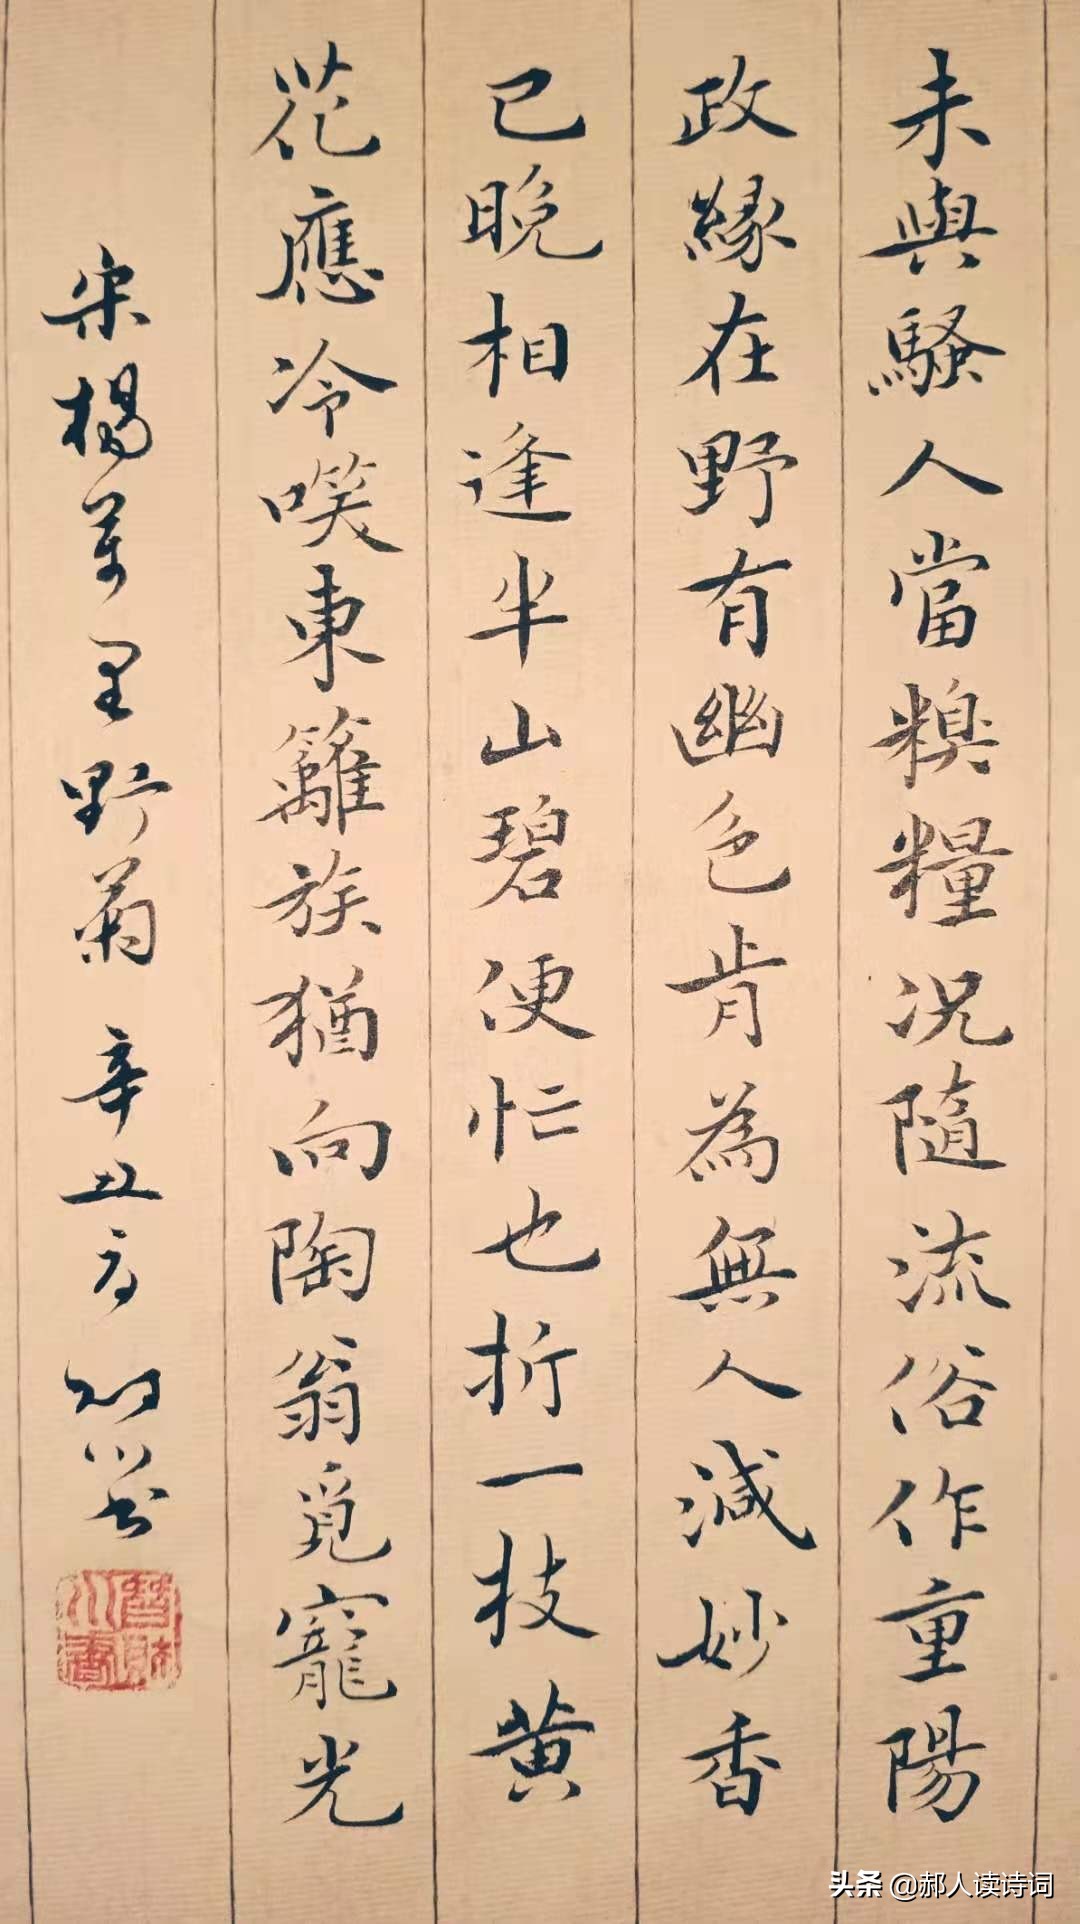 未與騷人當糗糧況隨流俗作重陽
政緣在野有幽色肯為無人減妙香
已晚相逢半山碧便忙也折一枝黄
花應冷㗛東籬族猶向陶翁覓寵光
宋楊萬里野菊 辛丑
头条 @郝人读诗词